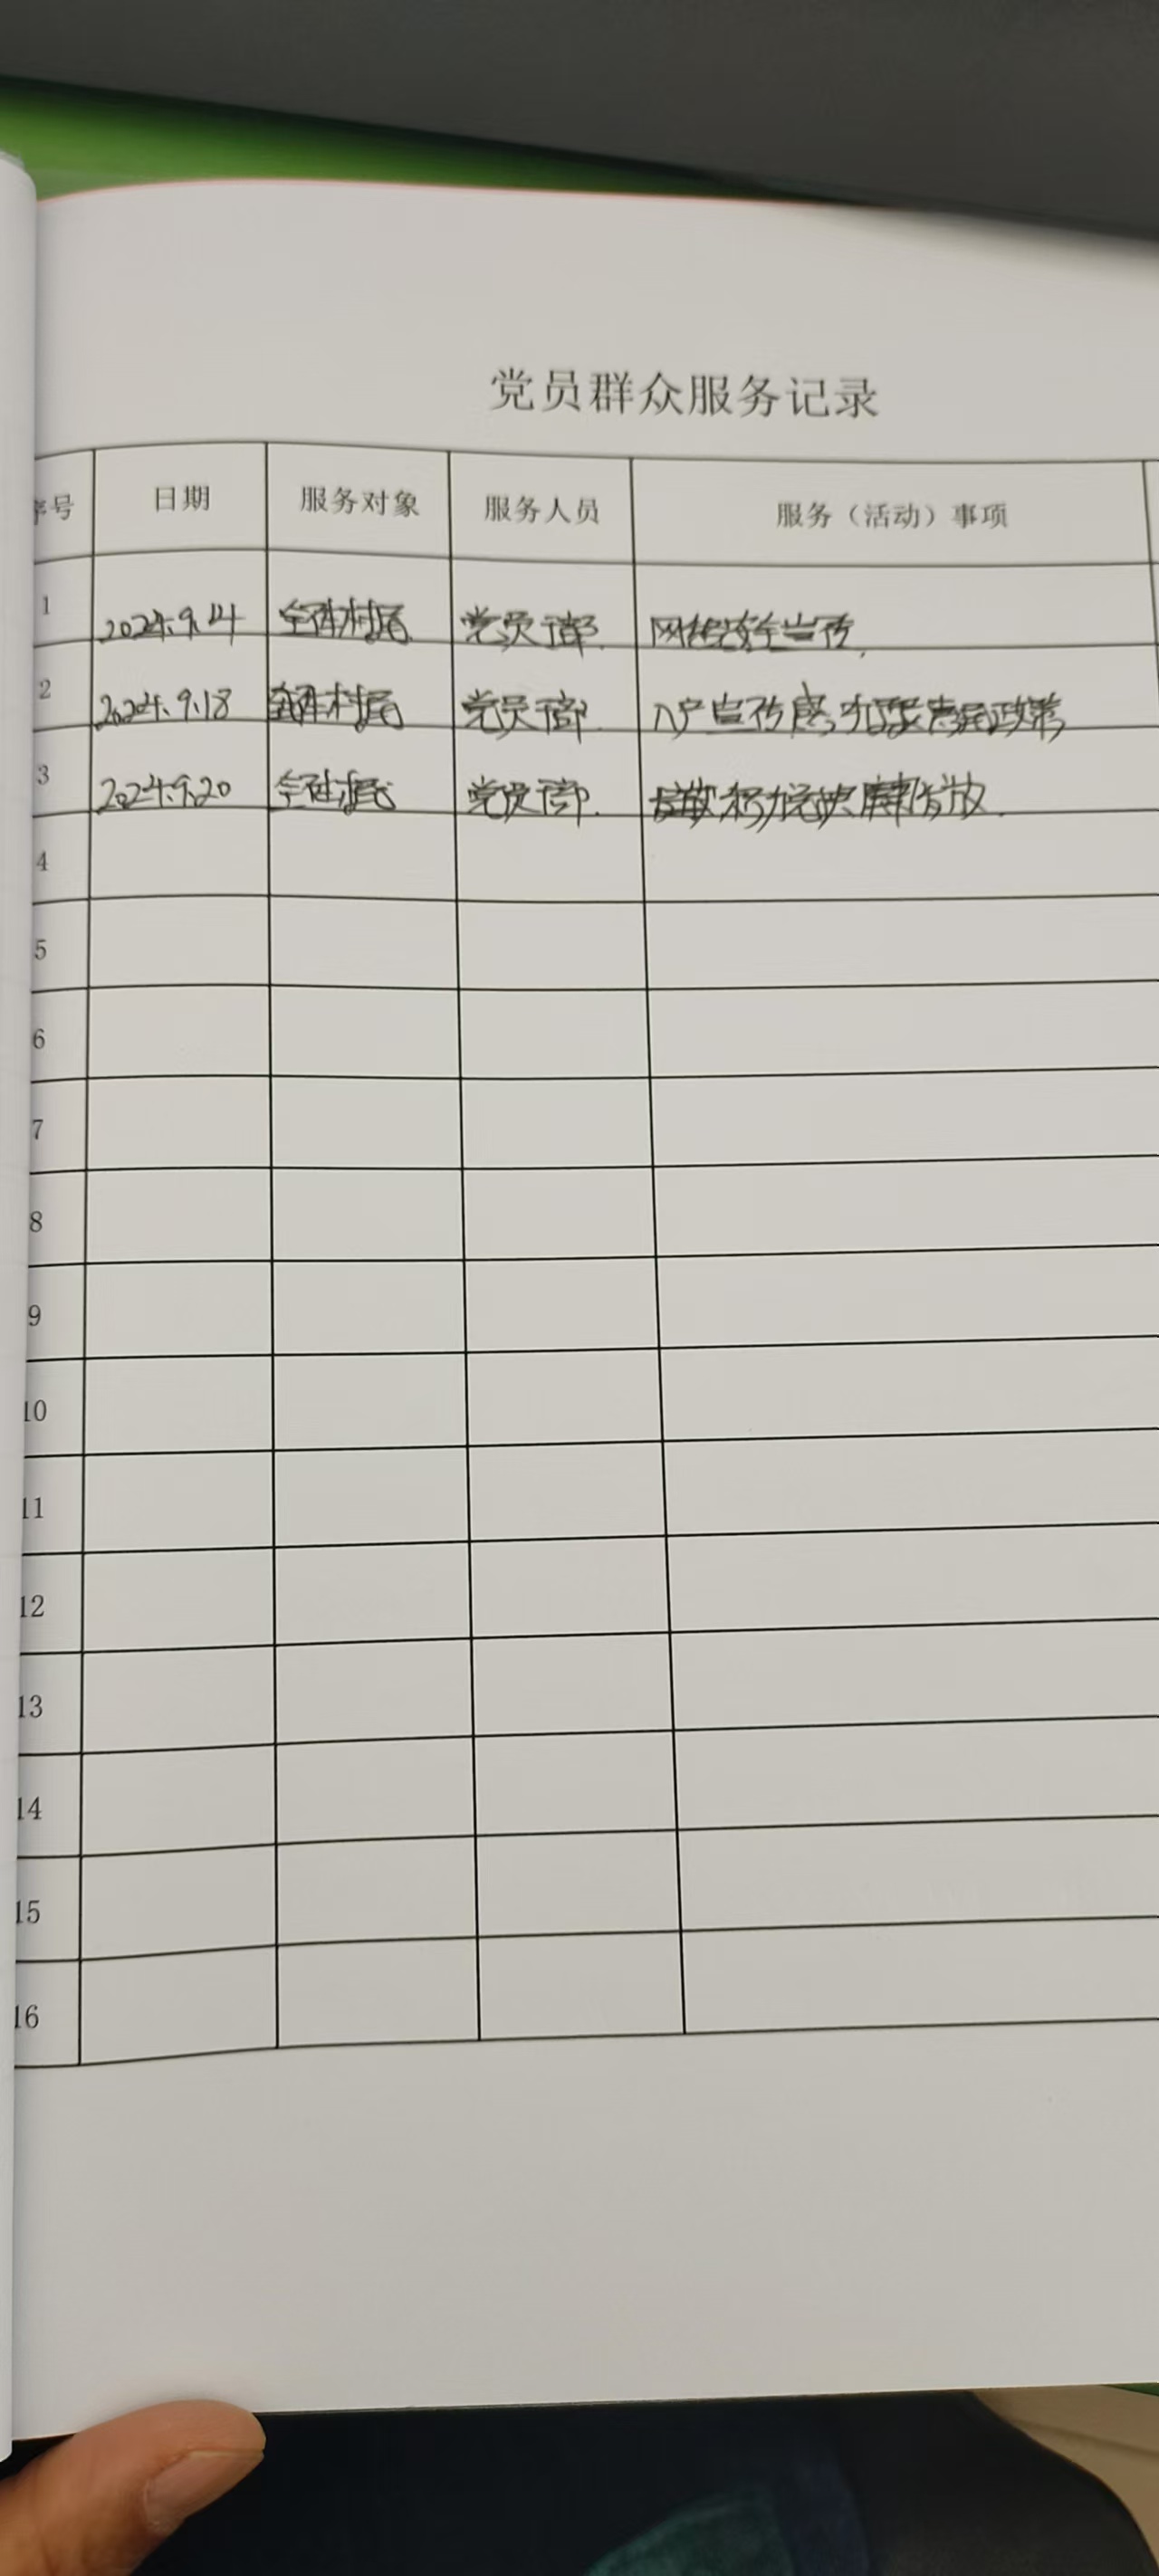 党员群众服务记录
序号 日期 服务对象 服务人员 服务（活动）事项
1 2024.9.14 全体村民 党员干部 网络安全宣传
2 2024.9.18 全体村民 党员干部 入户宣传 惠民政策
3 2024.9.20 全体村民 党员干部 发放
4
5
6
7
8
9
10
11
12
13
14
15
16